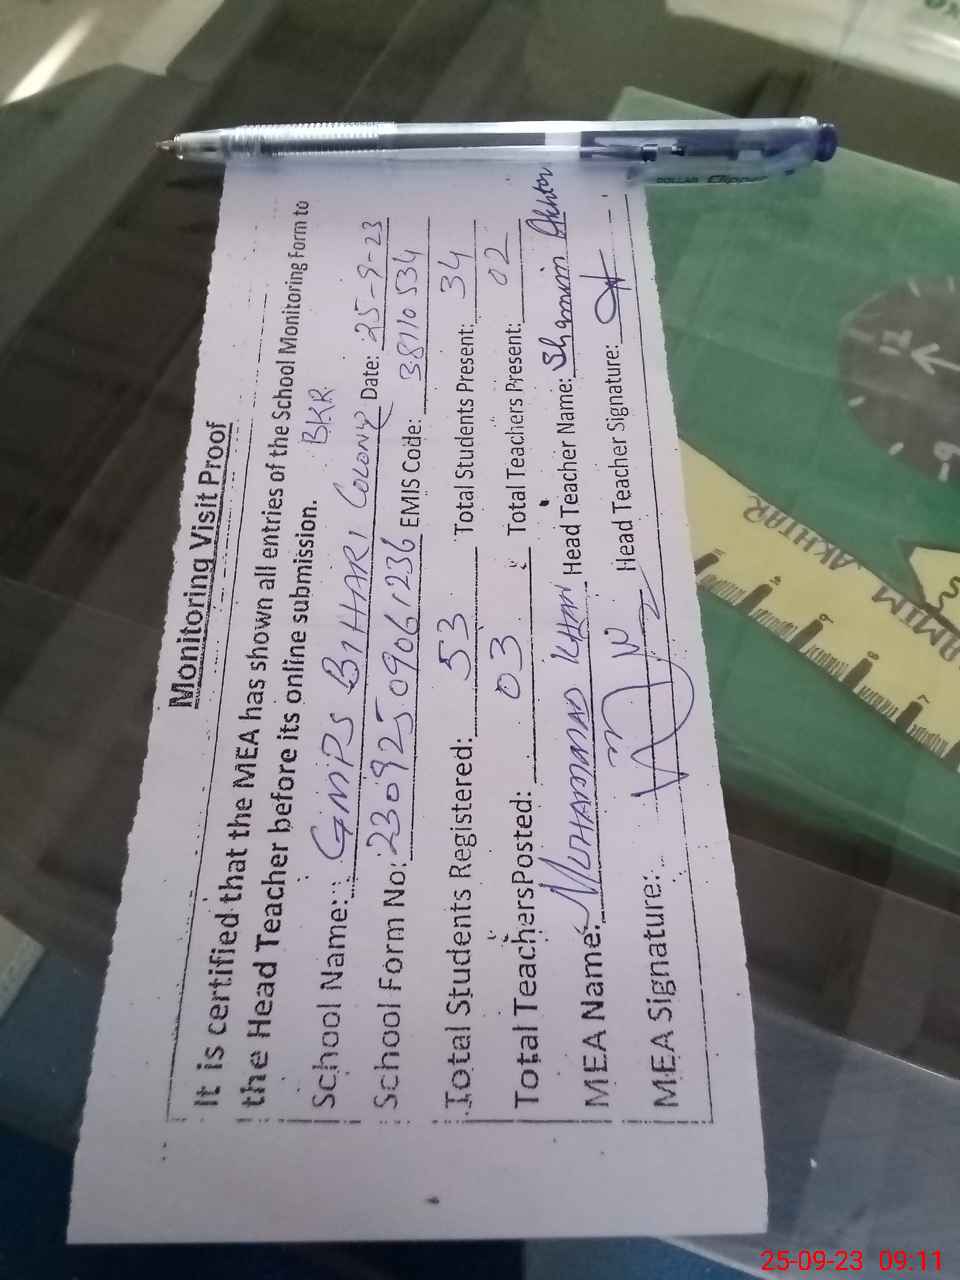 Monitoring Visit Proof
It is certified that the MEA has shown all entries of the School Monitoring Form to
the Head Teacher before its online submission.
BKR
School Name: GMPS BIHARI COLONY Date: 25-9-23
School Form No: 23092509061236 EMIS Code: 38110534
Total Students Registered: 53 Total Students Present: 34
Total TeachersPosted: 03 Total Teachers Present: 02
MEA Name: MUHAMMAD KHAN Head Teacher Name: Shamim Akhtar
MEA Signature: Head Teacher Signature:
DOLLAR Clipper
AKHTAR
12
9
25-09-23 09:11